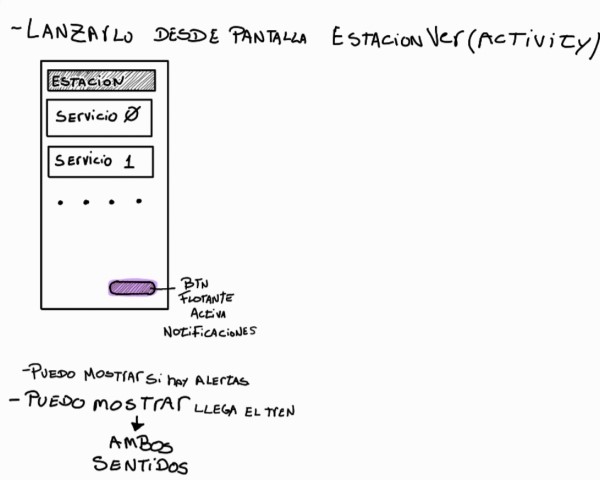 -LANZARLO DESDE PANTALLA ESTACIONVer(ACTIVITY)
ESTACION
Servicio 0
Servicio 1
BTN
FLOTANTE
ACTIVA
NOTIFICACIONES
-PUEDO MOSTRAR Si hay ALERTAS
-PUEDO MOSTRAR LLEGA EL TREN
AMBOS
SENTIDOS